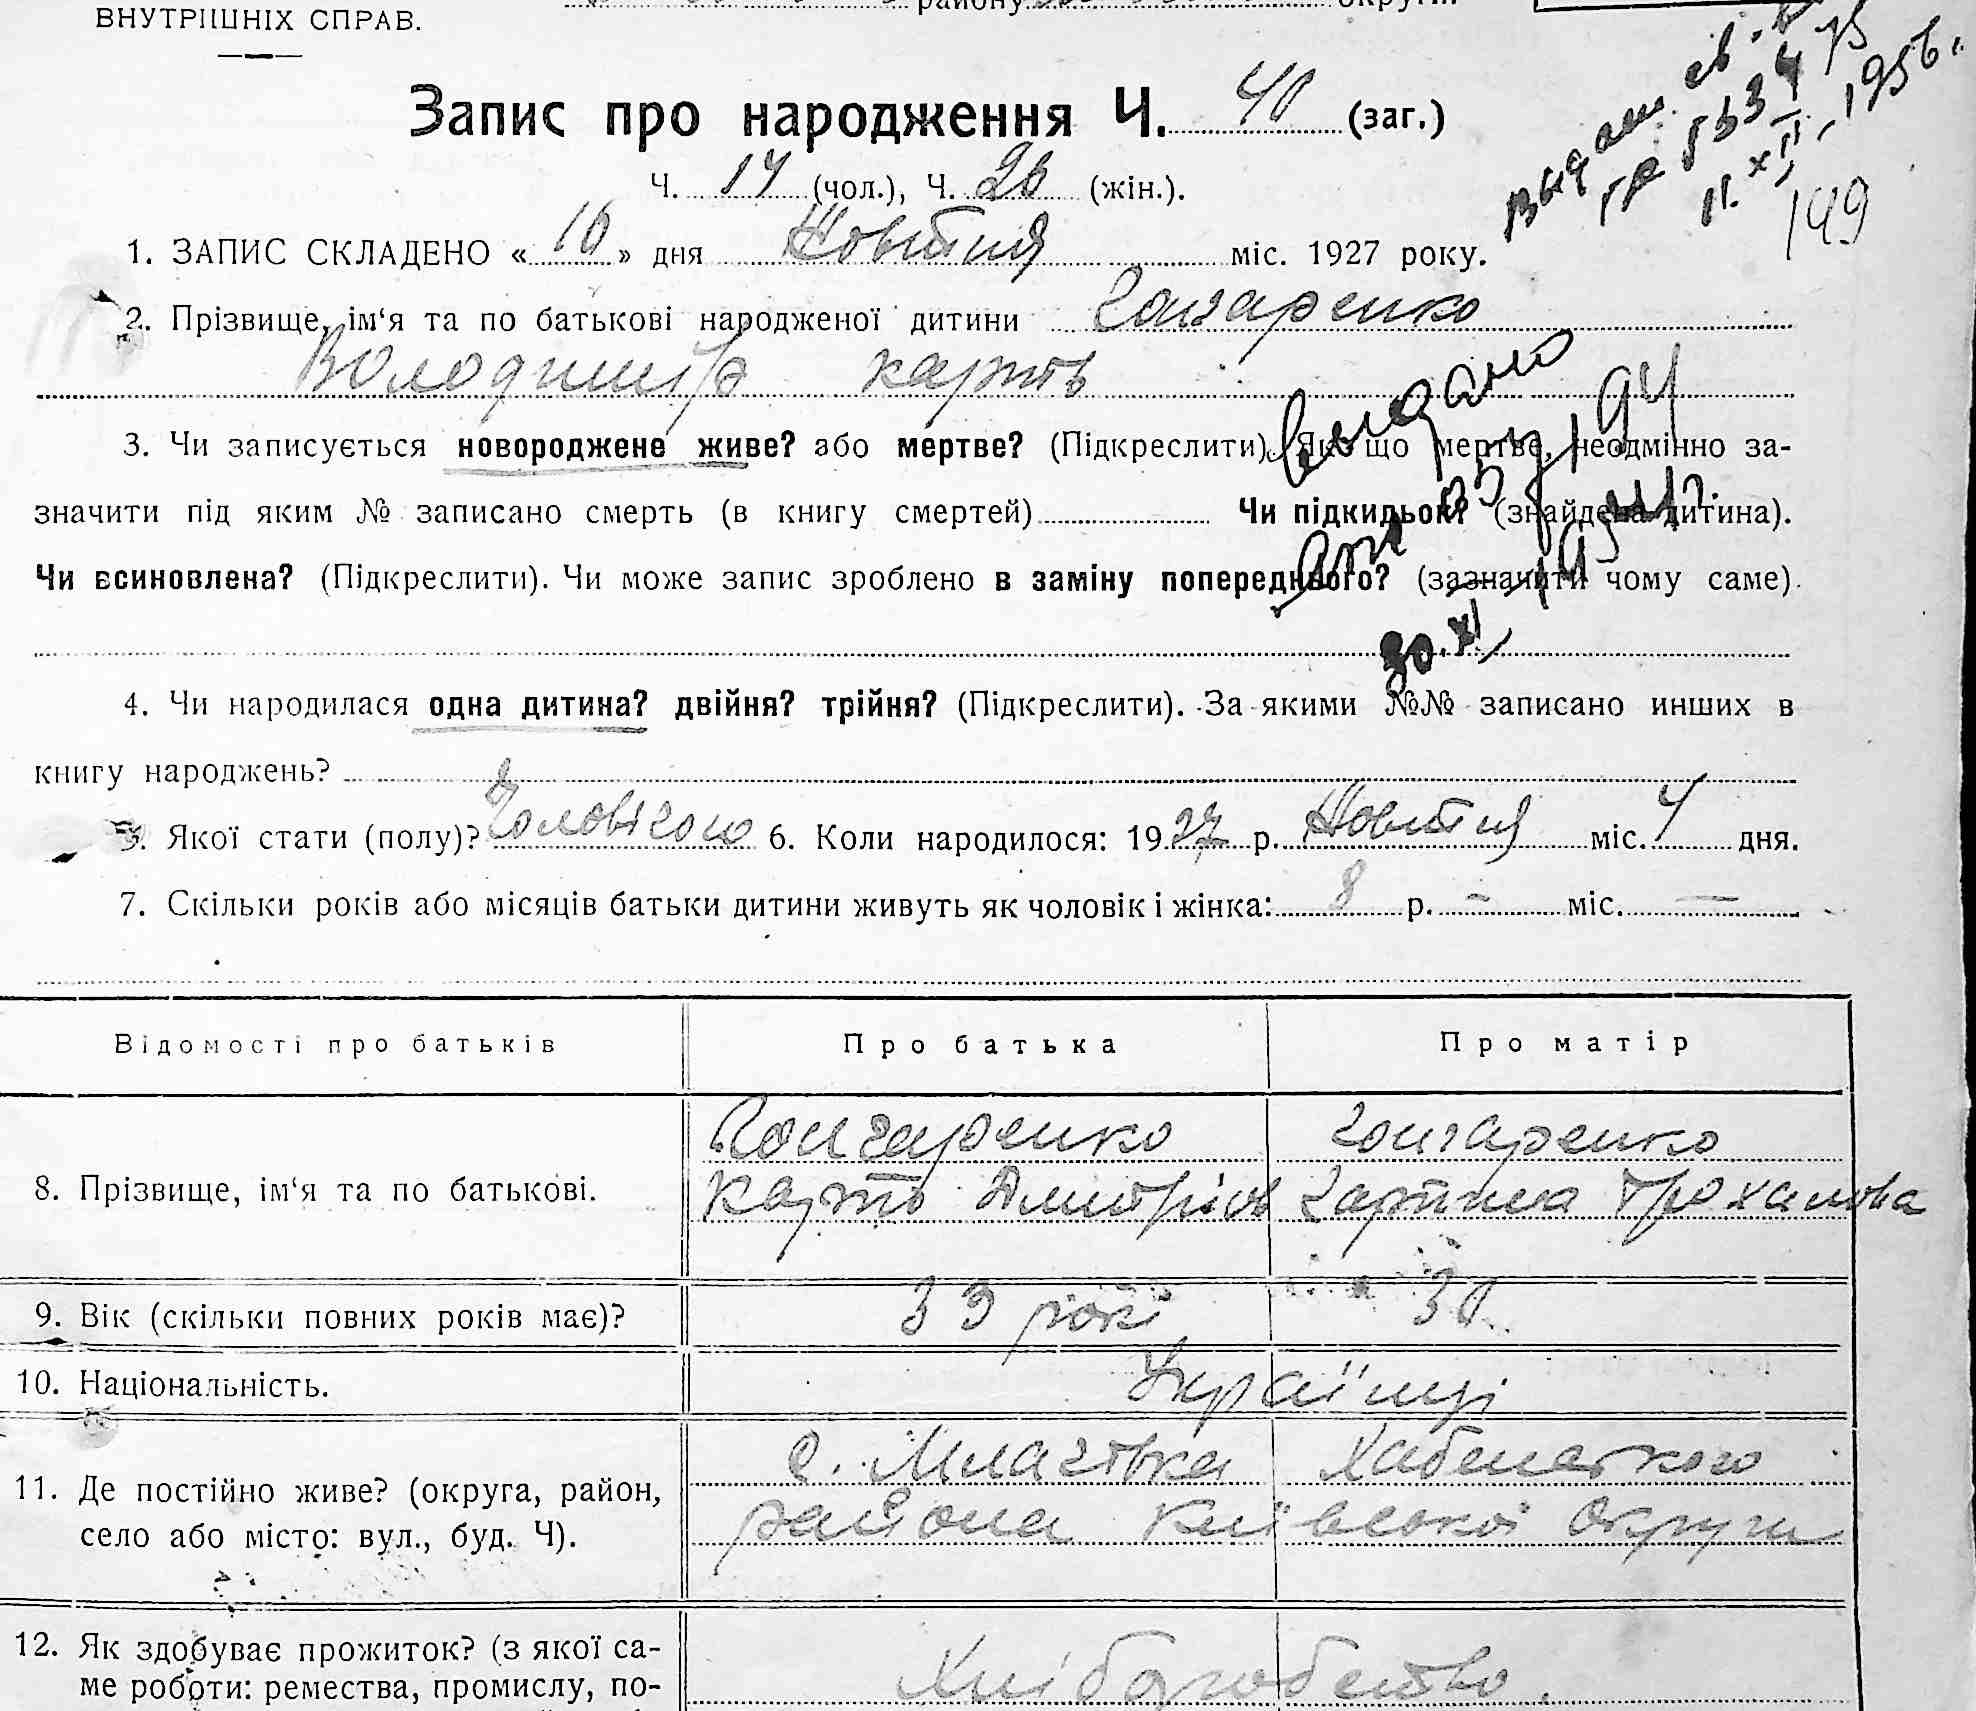 ВНУТРІШНІХ СПРАВ.
району
Запис про народження Ч. 40 (заг.)
Ч. 14 (чол.), Ч. 26 (жін.).
149
1. ЗАПИС СКЛАДЕНО «10» дня Жовтня міс. 1927 року.
2. Прізвище, ім‘я та по батькові народженої дитини Гончаренко
Володимир
3. Чи записується новороджене живе? або мертве? (Підкреслити). Як що мертве, неодмінно за-
видано
значити під яким № записано смерть (в книгу смертей) Чи підкидьок? (знайдена дитина).
Чи всиновлена? (Підкреслити). Чи може запис зроблено в заміну попереднього? (зазначити чому саме)
30.XI
4. Чи народилася одна дитина? двійня? трійня? (Підкреслити). За якими №№ записано инших в
книгу народжень?
5. Якої стати (полу)? Чоловічого 6. Коли народилося: 1927 р. Жовтня міс. 4 дня.
7. Скільки років або місяців батьки дитини живуть як чоловік і жінка: 8 р. – міс. —
Відомості про батьків Про батька Про матір
Гончаренко гончаренко
8. Прізвище, ім‘я та по батькові.
9. Вік (скільки повних років має)? 33 рокі 30
10. Національність. Українці
с. Млачівка Хабенського
11. Де постійно живе? (округа, район,
района Київської округи
село або місто: вул., буд. Ч).
12. Як здобуває прожиток? (з якої са-
ме роботи: ремества, промислу, по- Хліборобство.